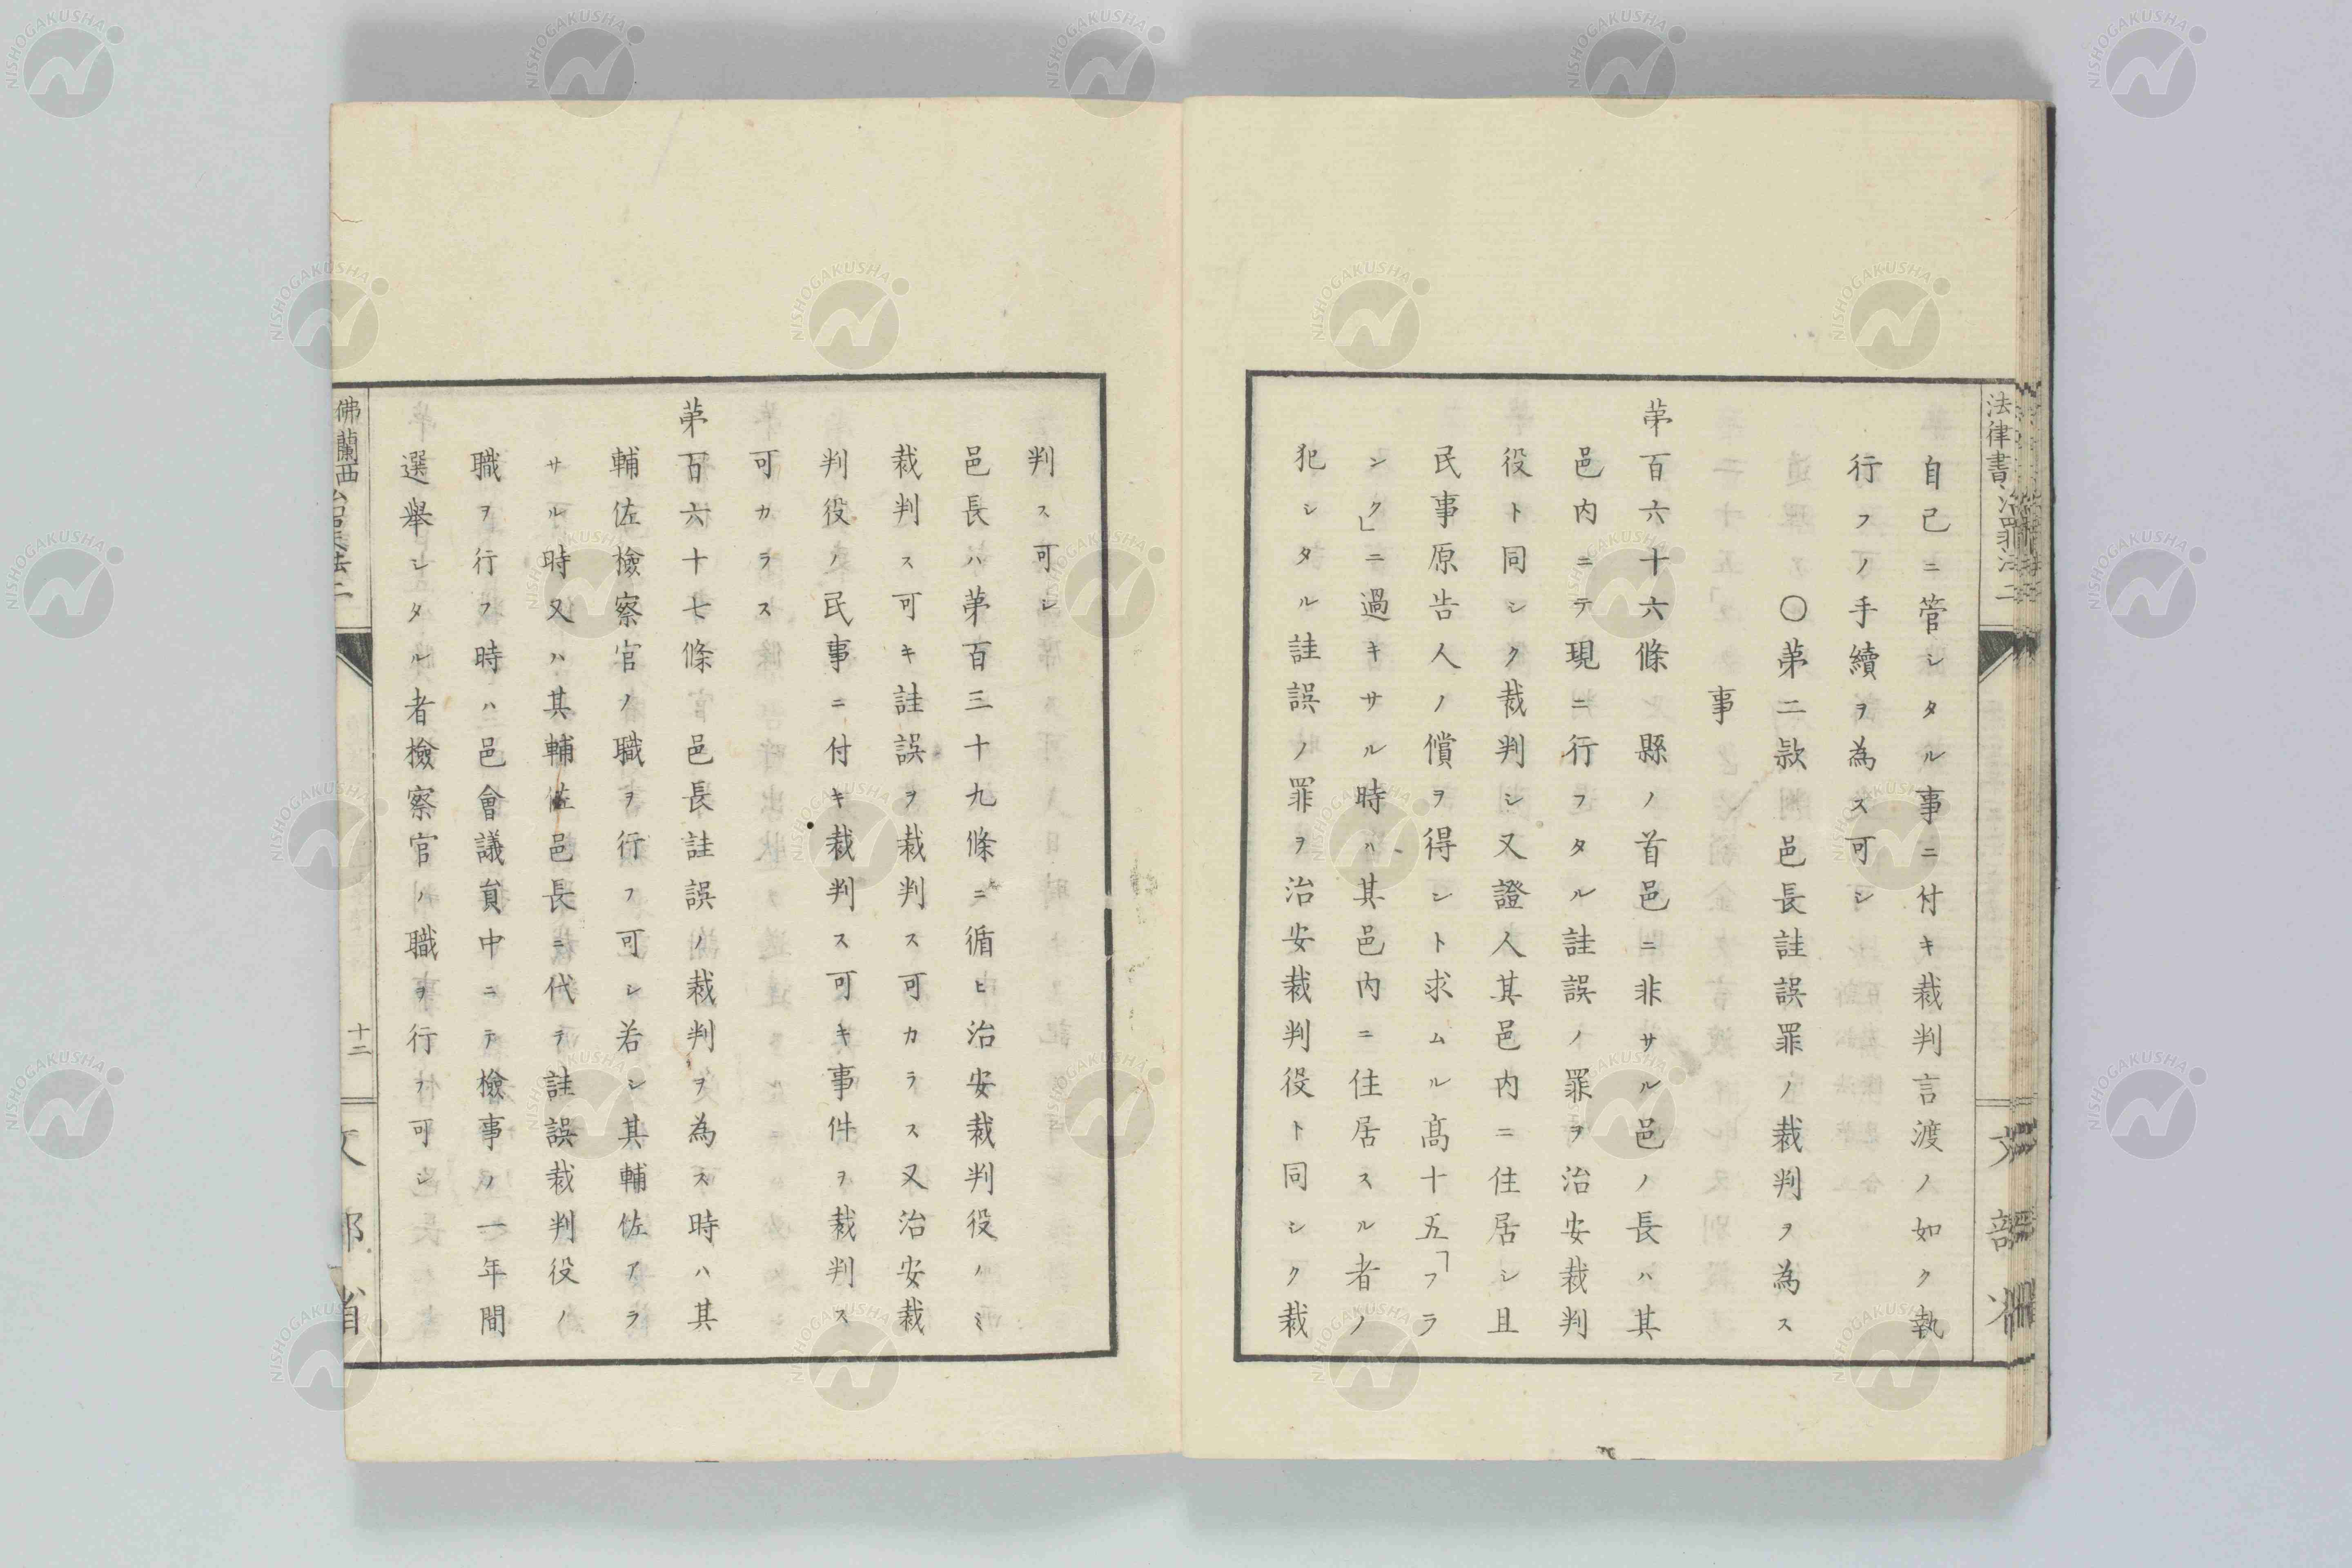 法律書 治罪法二
自己ニ管シタル事ニ付キ裁判言渡ノ如ク執
行フノ手續ヲ為ス可シ
〇第二款 邑長詿誤罪ノ裁判ヲ為ス
事
第百六十六條 縣ノ首邑ニ非サル邑ノ長ハ其
邑内ニテ現ニ行フタル詿誤ノ罪ヲ治安裁判
役ト同シク裁判シ又證人其邑内ニ住居シ且
民事原告人ノ償ヲ得ント求ムル髙十五「フラ
ンク」ニ過キサル時ハ其邑内ニ住居スル者ノ
犯シタル詿誤ノ罪ヲ治安裁判役ト同シク裁
判ス可シ
邑長ハ第百三十九條ニ循ヒ治安裁判役ノミ
裁判ス可キ詿誤ヲ裁判ス可カラス又治安裁
判役ノ民事ニ付キ裁判ス可キ事件ヲ裁判ス
可カラス
第百六十七條 邑長詿誤ノ裁判ヲ為ス時ハ其
輔佐檢察官ノ職ヲ行フ可シ若シ其輔佐アラ
サル時又ハ其輔佐邑長ニ代テ詿誤裁判役ノ
職ヲ行フ時ハ邑會議貟中ニテ檢事ノ一年間
選舉シタル者檢察官ノ職ヲ行フ可シ
佛蘭西
十二
NISHOGAKUSHA